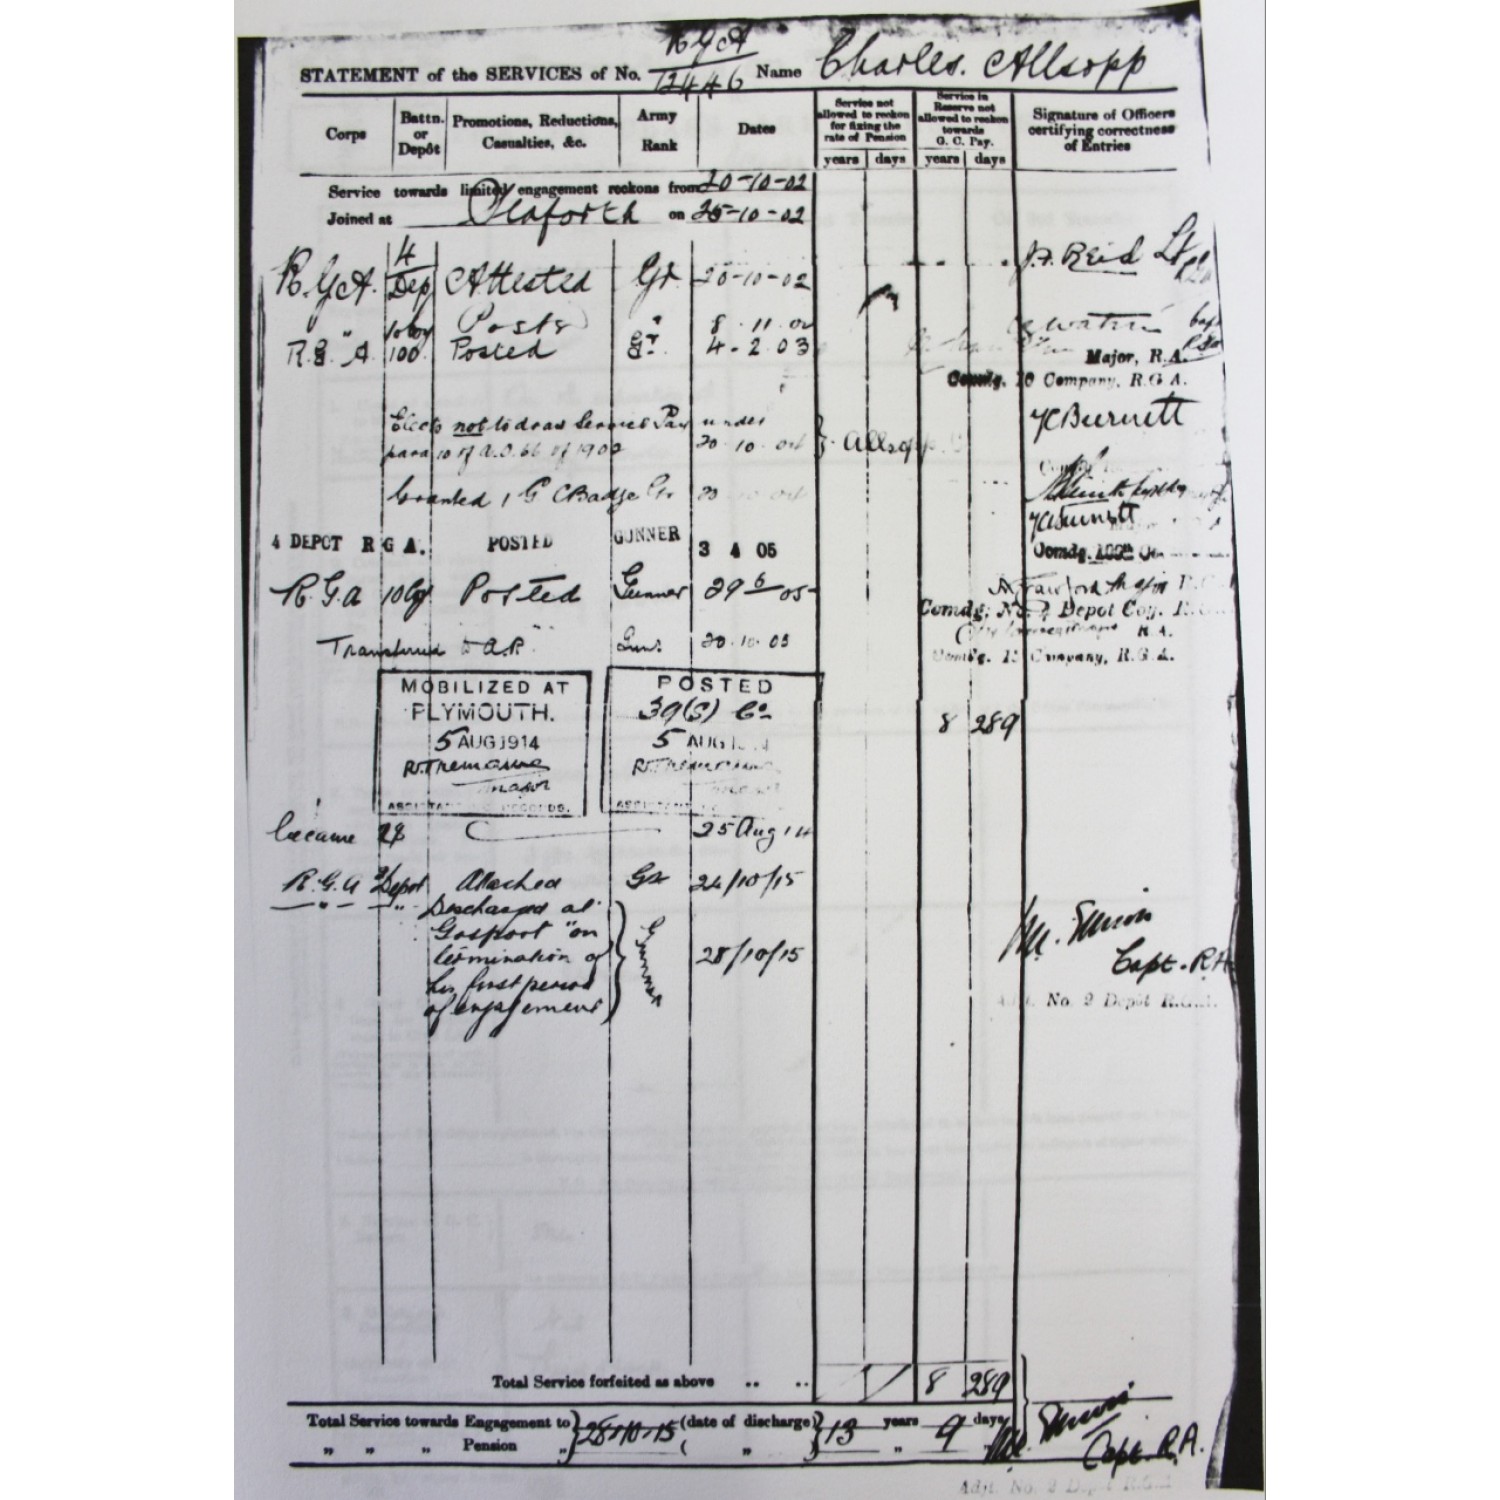 R G A
STATEMENT of the SERVICES of No. 12446 Name Charles. Allsopp
Corps
Battn. or Depôt
Promotions, Reductions, Casualties, &c.
Army Rank
Dates
Service not allowed to reckon for fixing the rate of Pension
years days
Service in Reserve not allowed to reckon towards G. C. Pay.
years days
Signature of Officers certifying correctness of Entries
Service towards limited engagement reckons from 20-10-02
Joined at Seaforth on 25-10-02
R.G.A. 4 Dep Attested Gr 20-10-02 J. F. Reid Lt
" 10 Coy Posted Gr 8 . 11 . 02
R.G.A. 100 Posted Gr. 4 - 2 . 03 Major, R.A.
Comdg. 10 Company, R.G.A.
Elects not to draw Service Pay under
para 10 of A.O. 66 of 1902 20 . 10 . 04 } Allsopp. C Burnett
Granted 1 G C Badge Gr 20 10 04
Burnett
4 DEPOT R G A. POSTED GUNNER 3 4 05 Comdg. 100th Co
R.G.A 10 Cy Posted Gunner 29 6 05 Major
Comdg. No. 4 Depot Coy. R.G.
Transferred to A.R. Gunr. 20 . 10 . 05 R.A.
Comdg. Company, R.G.A.
MOBILIZED AT
PLYMOUTH.
5 AUG 1914
R. Tremayne
Major
ASSISTANT RECORDS.
POSTED
39(S) Co
5 AUG
R. Tremayne
Major
ASSISTANT
8 289
became 28 25 Aug 14
R.G.A 2/Depot Attached Gr 24/10/15
" " Discharged at
Gosport "on
termination of
his first period
of engagement } Gunner 28/10/15
Capt. R.A
Adjt. No. 2 Depôt R.G.A.
Total Service forfeited as above .. .. 8 289
Total Service towards Engagement to } 28-10-15 (date of discharge) } 13 years 9 days
" " " Pension " ( " ) "
Capt. R.A.
Adjt. No. 2 Depôt R.G.A.